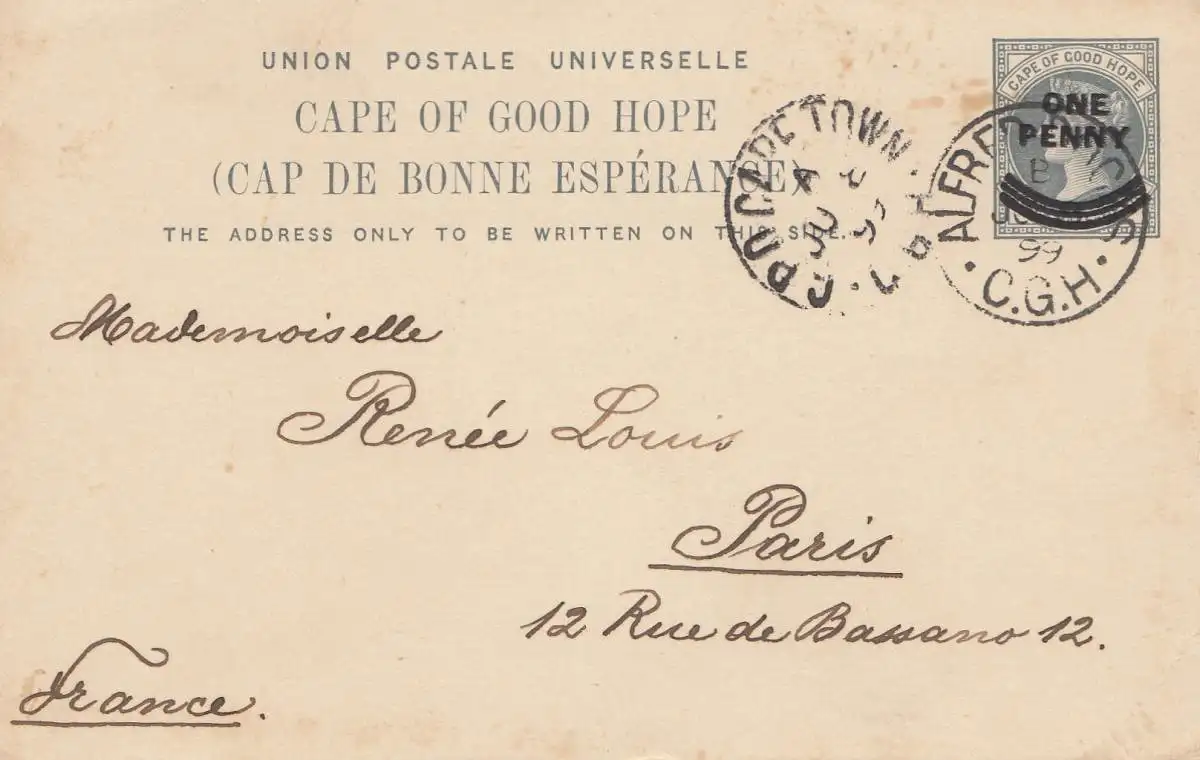 UNION POSTALE UNIVERSELLE
CAPE OF GOOD HOPE
(CAP DE BONNE ESPÉRANCE)
THE ADDRESS ONLY TO BE WRITTEN ON THIS SIDE.
CAPE OF GOOD HOPE
ONE
PENNY
G.P.O. CAPE TOWN
ALFRED
B
99
C.G.H.
Mademoiselle
Renée Louis
Paris
12 Rue de Bassano 12.
France.